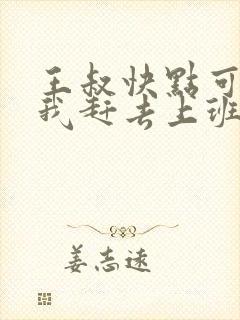 王叔快點可
我赶去上班
姜志遠